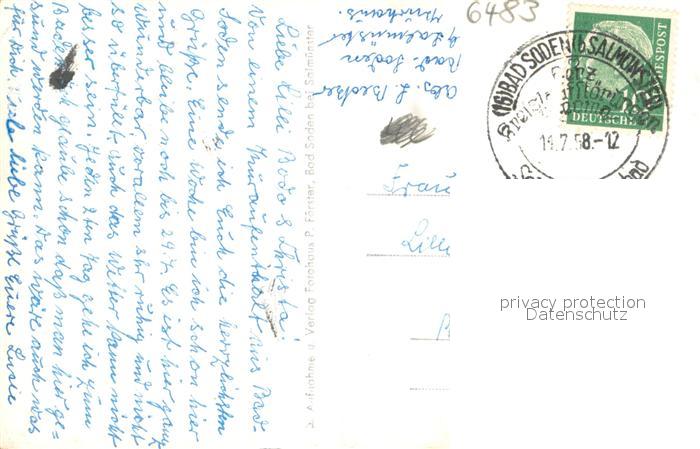 Liebe Lilli Bodo & Christa!
Von einem Kuraufenthalt aus Bad-
Soden sende ich Euch die herzlichsten
Grüße. Eine Woche bin ich schon hier
und bleibe noch bis 29.7. Es ist hier ganz
wunderbar, vor allem sehr ruhig und nicht
so überfüllt, auch das Wetter kann nicht
besser sein. Jeden 2ten Tag gehe ich zum
Baden, ich glaube schon daß man hier ge=
sund werden kann. Das wäre auch was
für Dich. Viele liebe Grüße Euere Lucie
Aufnahme u. Verlag Fotohaus P. Förster, Bad Soden bei Salmünster
Abs. L. Becker
Bad-Soden
b/Salmünster
Kurhaus.
6483
(16) BAD SODEN (b SALMÜNSTER)
11.7.58.-12
10
DEUTSCHE
BUNDESPOST
Frau
Lill
privacy protection
Datenschutz